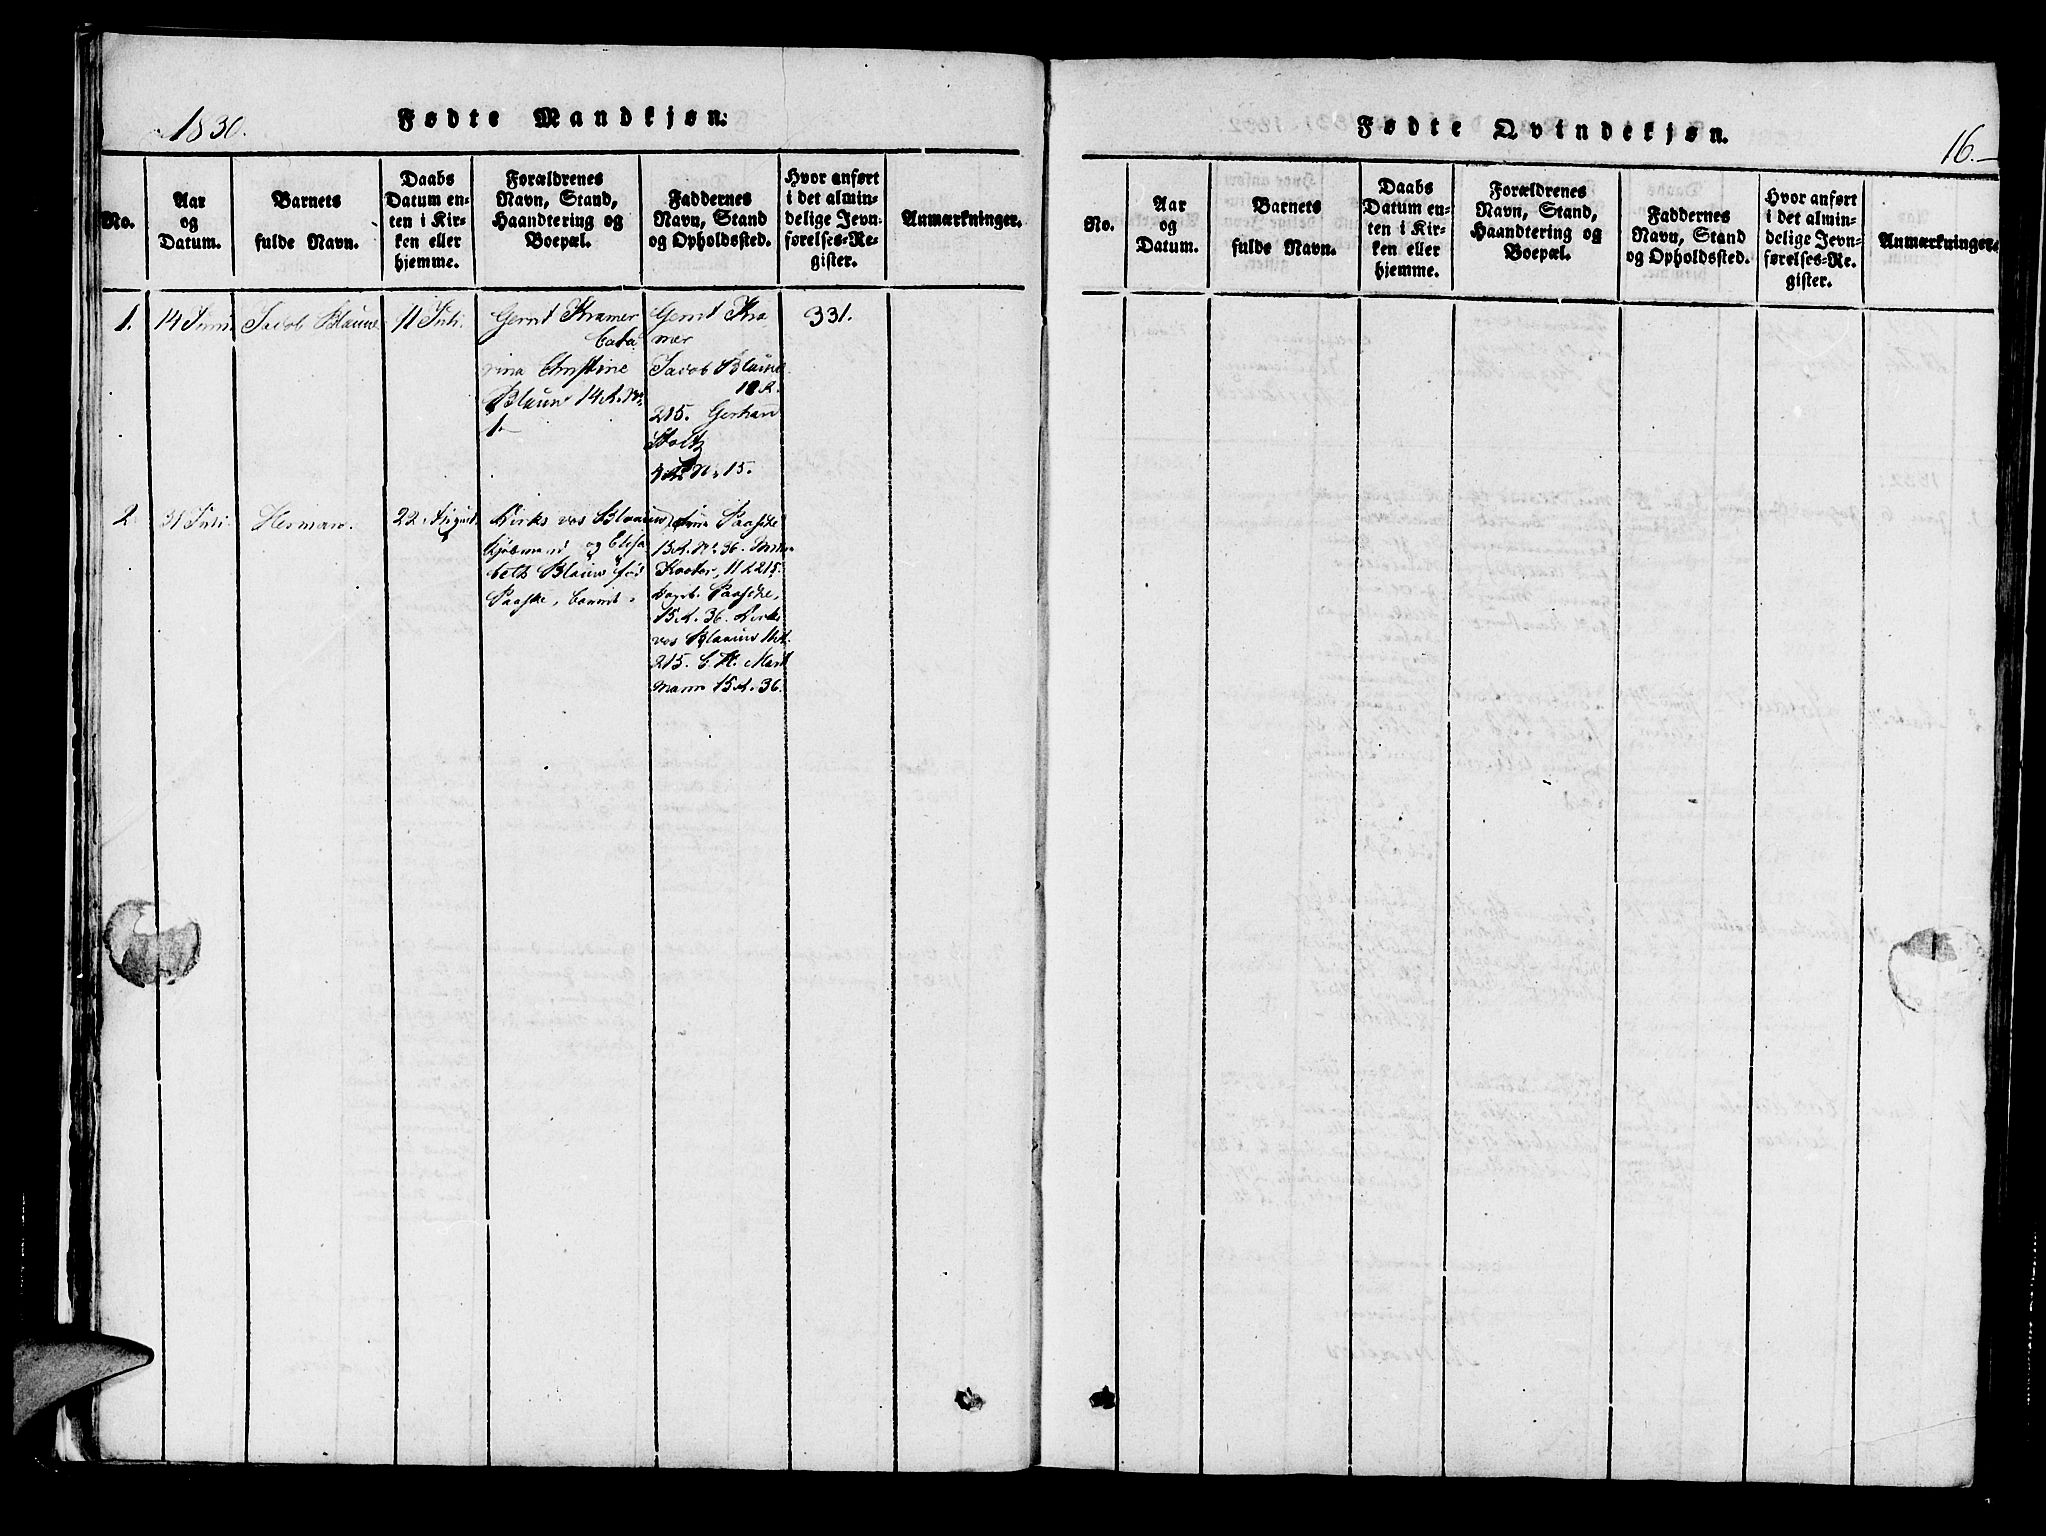 1830.
Fødte Mandkjøn.
No.
Aar
og
Datum.
Barnets
fulde Navn.
Daabs
Datum en-
ten i Kir-
ken eller
hjemme.
Forældrenes
Navn, Stand,
Haandtering og
Boepæl.
Faddernes
Navn, Stand
og Opholdssted.
Hvor anført
i det almin-
delige Jevn-
førelses-Re-
gister.
Anmærkninger.
1.
14 Juni.
Jacob Blauw
11 Juli.
Gerrit Kramer
Cata
rina Christine
Blauw 14 A. No
1.
Gerrit Kra
mer
Jacob Blauw
215.
Stoltz
No 15.
331.
2
31 Juli.
Herman.
22 August.
Dirks vos Blaauw
Kjøbmand og Elisa
beth Blauw fød
Paaske,
Paaske
15 A. No 36.
215.
Paaske,
15 A. 36. Dirks
vos Blaauw
215. C. H. Mart
mann 15 A. 36.
Fødte Qvindekjøn.
16.
No.
Aar
og
Datum.
Barnets
fulde Navn.
Daabs
Datum en-
ten i Kir-
ken eller
hjemme.
Forældrenes
Navn, Stand,
Haandtering og
Boepæl.
Faddernes
Navn, Stand
og Opholdssted.
Hvor anført
i det almin-
delige Jevn-
førelses-Re-
gister.
Anmærkninger.